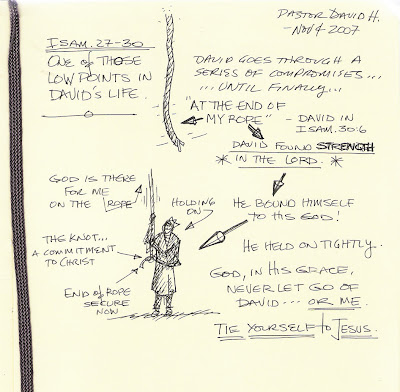 PASTOR DAVID H.
- NOV 4 2007
I SAM. 27-30
ONE OF THOSE
LOW POINTS IN
DAVID'S LIFE.
DAVID GOES THROUGH A
SERIES OF COMPROMISES...
... UNTIL FINALLY...
"AT THE END OF
MY ROPE" - DAVID IN
I SAM. 30:6
DAVID FOUND STRENGTH
* IN THE LORD. *
GOD IS THERE
FOR ME
ON THE ROPE
HOLDING
ON
THE KNOT...
A COMMITMENT
TO CHRIST
END OF ROPE
SECURE
NOW
HE BOUND HIMSELF
TO HIS GOD!
HE HELD ON TIGHTLY..
GOD, IN HIS GRACE,
NEVER LET GO OF
DAVID... OR ME.
TIE YOURSELF to JESUS.